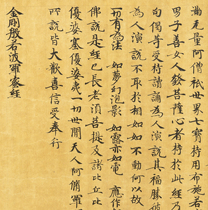 滿無量阿僧祇世界七寶持用布施若
男子善女人發菩薩心者持於此經乃
句偈等受持讀誦為人演說其福勝彼
為人演說不取於相如如不動何以故
一切有為法 如夢幻泡影 如露亦如電 應作
佛說是經已長老須菩提及諸比丘比
優婆塞優婆夷一切世間天人阿脩羅
所說皆大歡喜信受奉行
金剛般若波羅蜜經